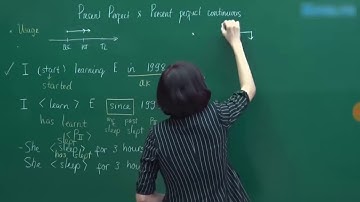 Present Perfect x Present perfect continuous
• Usage
QK HT TL
✓ I (start) learning E in 1998
started QK
✓ I <learn> E since 199
has learnt mg past
sleep slept
(S P II)
slept
- She <sleep> for 3 hours
has slept
She <sleep> for 3 hou